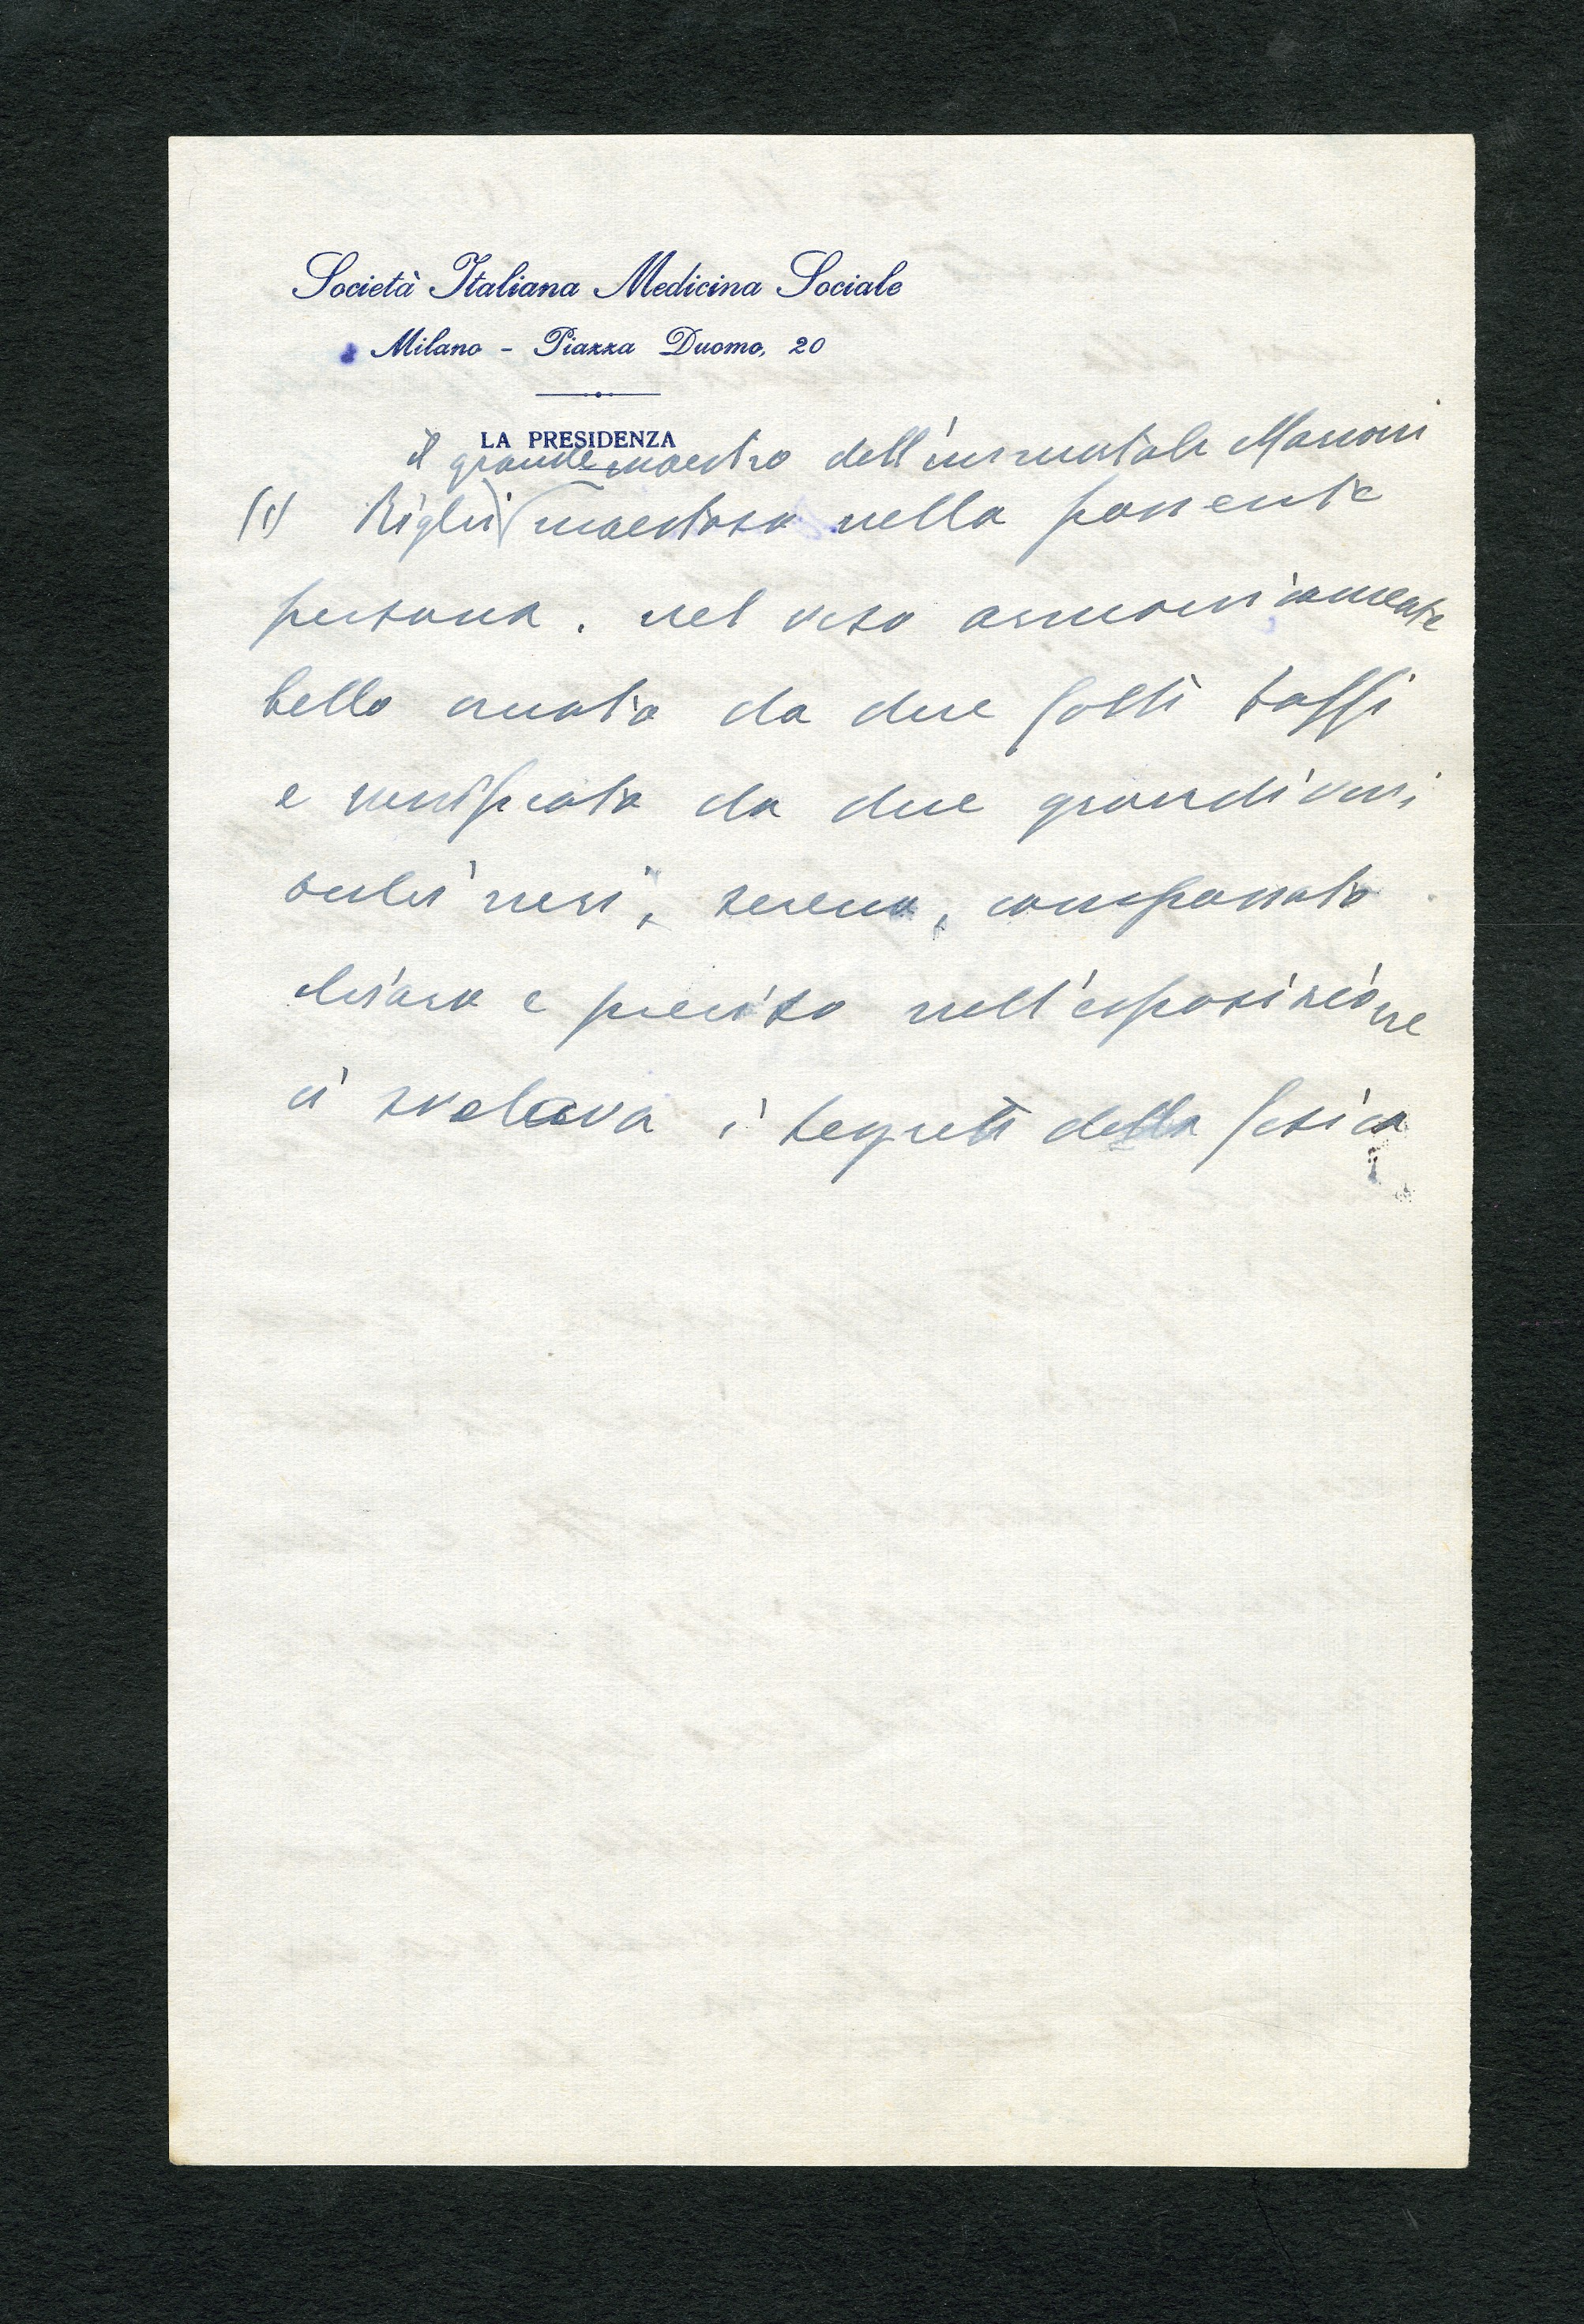 Società Italiana Medicina Sociale
Milano - Piazza Duomo, 20
LA PRESIDENZA
il grande maestro dell'immortale Marconi
(1) Righi maestoso nella possente
persona. nel viso armonicamente
bello ornato da due folti baffi
e da due grandi
sereno, compassato
chiaro e preciso nell'esposizione
ci svelava i segreti della fisica